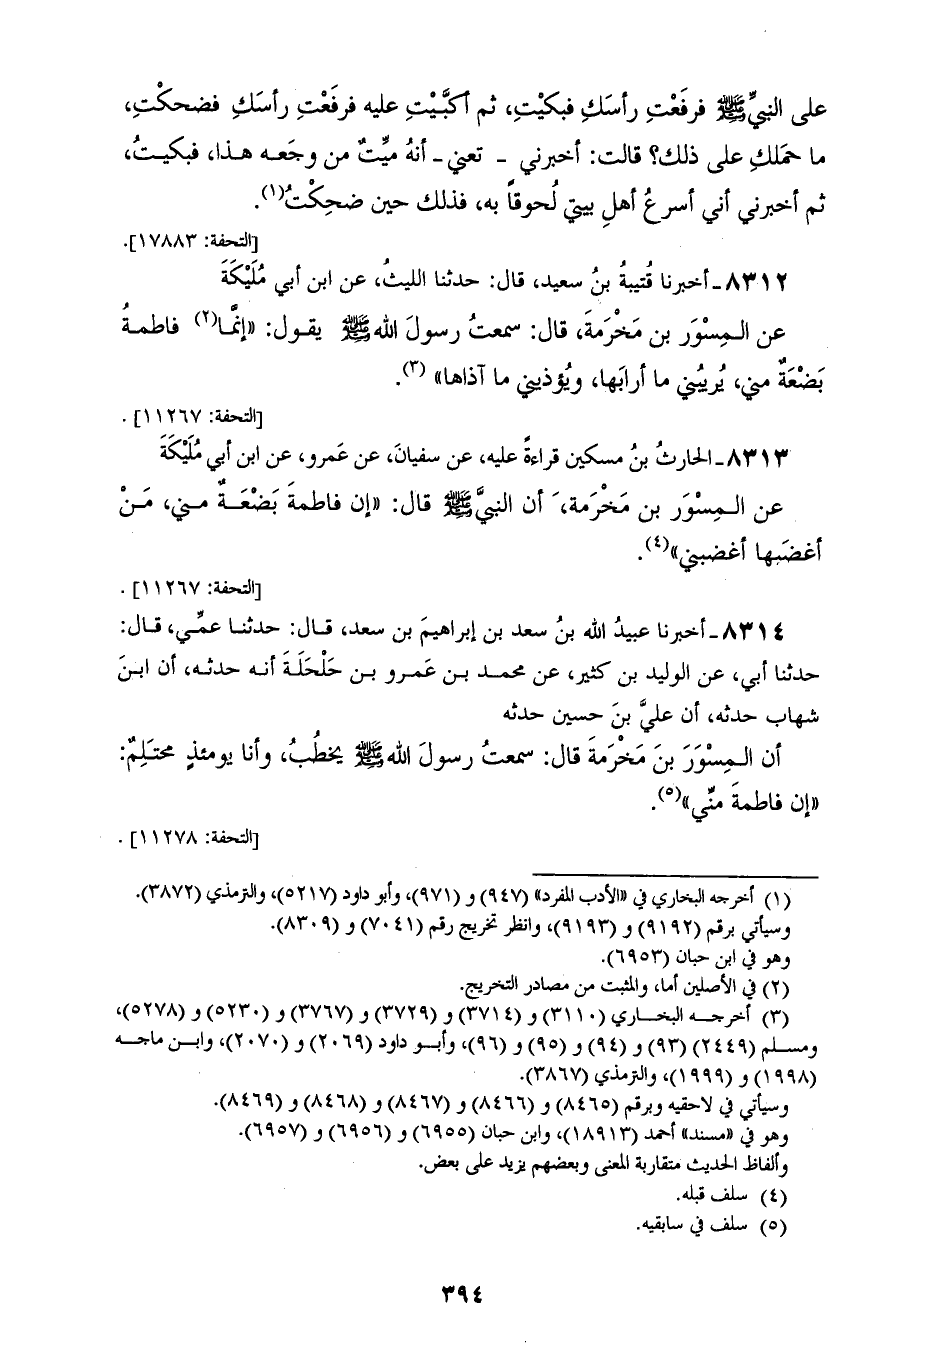 على النبيِّ ﷺ فرفَعْتِ رأسَكِ فبكيْتِ، ثم أكبَّيْتِ عليه فرفَعْتِ رأسَكِ فضحكْتِ،
ما حمَلكِ على ذلك؟ قالت: أخبرني - تعني - أنهُ ميِّتٌ من وجَعه هذا، فبكيتُ،
ثم أخبرني أني أسرعُ أهلِ بيتي لُحوقاً به، فذلك حين ضحِكْتُ(١).
[التحفة: ١٧٨٨٣].
٨٣١٢ ـ أخبرنا قُتيبةُ بنُ سعيد، قال: حدثنا الليثُ، عن ابن أبي مُلَيْكَةَ
عن المِسْوَر بن مَخْرَمةَ، قال: سمعتُ رسولَ الله ﷺ يقول: «إنَّما(٢) فاطمةُ
بَضْعَةٌ مني، يُريبُني ما أرابَها، ويُؤذيني ما آذاها» (٣).
[التحفة: ١١٢٦٧] .
٨٣١٣ ـ الحارثُ بنُ مسكين قراءةً عليه، عن سفيانَ، عن عَمرو، عن ابن أبي مُلَيْكَةَ
عن المِسْوَر بن مَخْرَمة، أن النبيَّ ﷺ قال: «إن فاطمةَ بَضْعَةٌ مني، مَنْ
أغضَبها أغضبني»(٤).
[التحفة: ١١٢٦٧] .
٨٣١٤ ـ أخبرنا عبيدُ الله بنُ سعد بن إبراهيمَ بن سعد، قال: حدثنا عمِّي، قال:
حدثنا أبي، عن الوليد بن كثير، عن محمد بن عَمرو بن حَلْحَلَةَ أنه حدثه، أن ابنَ
شهاب حدثه، أن عليَّ بنَ حسين حدثه
أن المِسْوَرَ بنَ مَخْرَمةَ قال: سمعتُ رسولَ الله ﷺ يخطُبُ، وأنا يومئذٍ محتَلِمٌ:
«إن فاطمةَ منِّي»(٥).
[التحفة: ١١٢٧٨] .
(١) أخرجه البخاري في «الأدب المفرد» (٩٤٧) و (٩٧١)، وأبو داود (٥٢١٧)، والترمذي (٣٨٧٢).
وسيأتي برقم (٩١٩٢) و (٩١٩٣)، وانظر تخريج رقم (٧٠٤١) و (٨٣٠٩).
وهو في ابن حبان (٦٩٥٣).
(٢) في الأصلين أما، والمثبت من مصادر التخريج.
(٣) أخرجه البخاري (٣١١٠) و (٣٧١٤) و (٣٧٢٩) و (٣٧٦٧) و (٥٢٣٠) و (٥٢٧٨)،
ومسلم (٢٤٤٩) (٩٣) و (٩٤) و (٩٥) و (٩٦)، وأبو داود (٢٠٦٩) و (٢٠٧٠)، وابن ماجه
(١٩٩٨) و (١٩٩٩)، والترمذي (٣٨٦٧).
وسيأتي في لاحقيه وبرقم (٨٤٦٥) و (٨٤٦٦) و (٨٤٦٧) و (٨٤٦٨) و (٨٤٦٩).
وهو في «مسند» أحمد (١٨٩١٣)، وابن حبان (٦٩٥٥) و (٦٩٥٦) و (٦٩٥٧).
وألفاظ الحديث متقاربة المعنى وبعضهم يزيد على بعض.
(٤) سلف قبله.
(٥) سلف في سابقيه.
٣٩٤